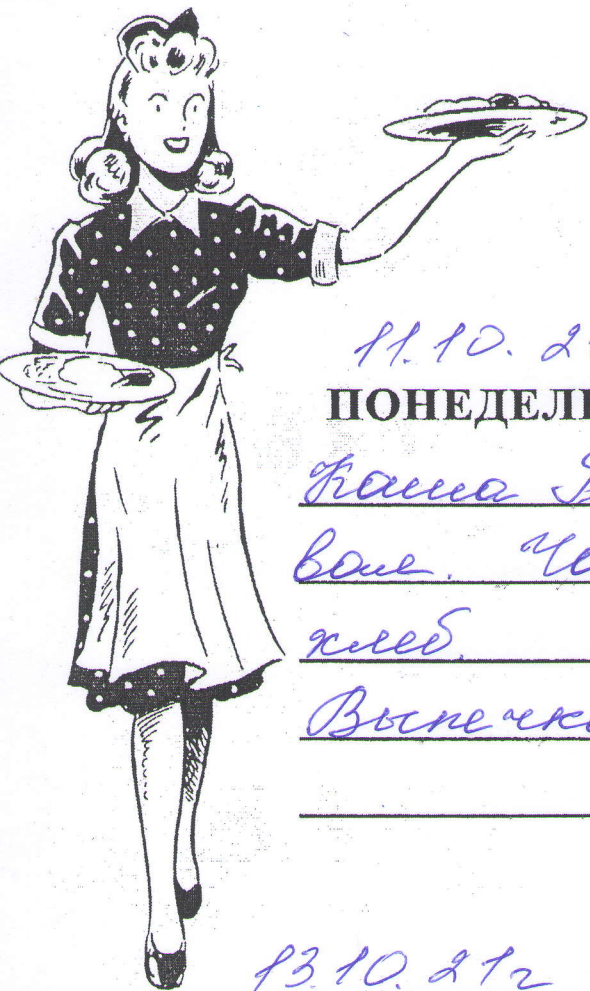 11.10. 2
ПОНЕДЕЛ
Каша
вол. Че
хлеб.
Выпечк
13.10.21г